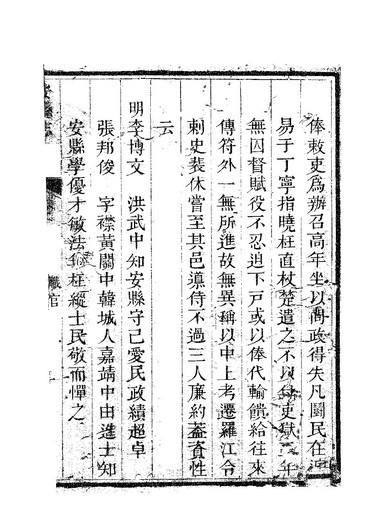 俸敕吏爲辦召高年坐以問政得失凡鬭民在
易于丁寧指曉枉直杖楚遣之不以付吏獄三年
無囚督賦役不忍迫下戸或以俸代輸饋給往來
傳符外一無所進故無異稱以中上考遷羅江令
刺史裴休嘗至其邑導侍不過三人廉約蓋資性
云
明李博文　洪武中知安縣守己愛民政績超卓
張邦俊　字襟黃關中韓城人嘉靖中由進士知
安縣學優才敏法無枉縱士民敬而憚之
職官